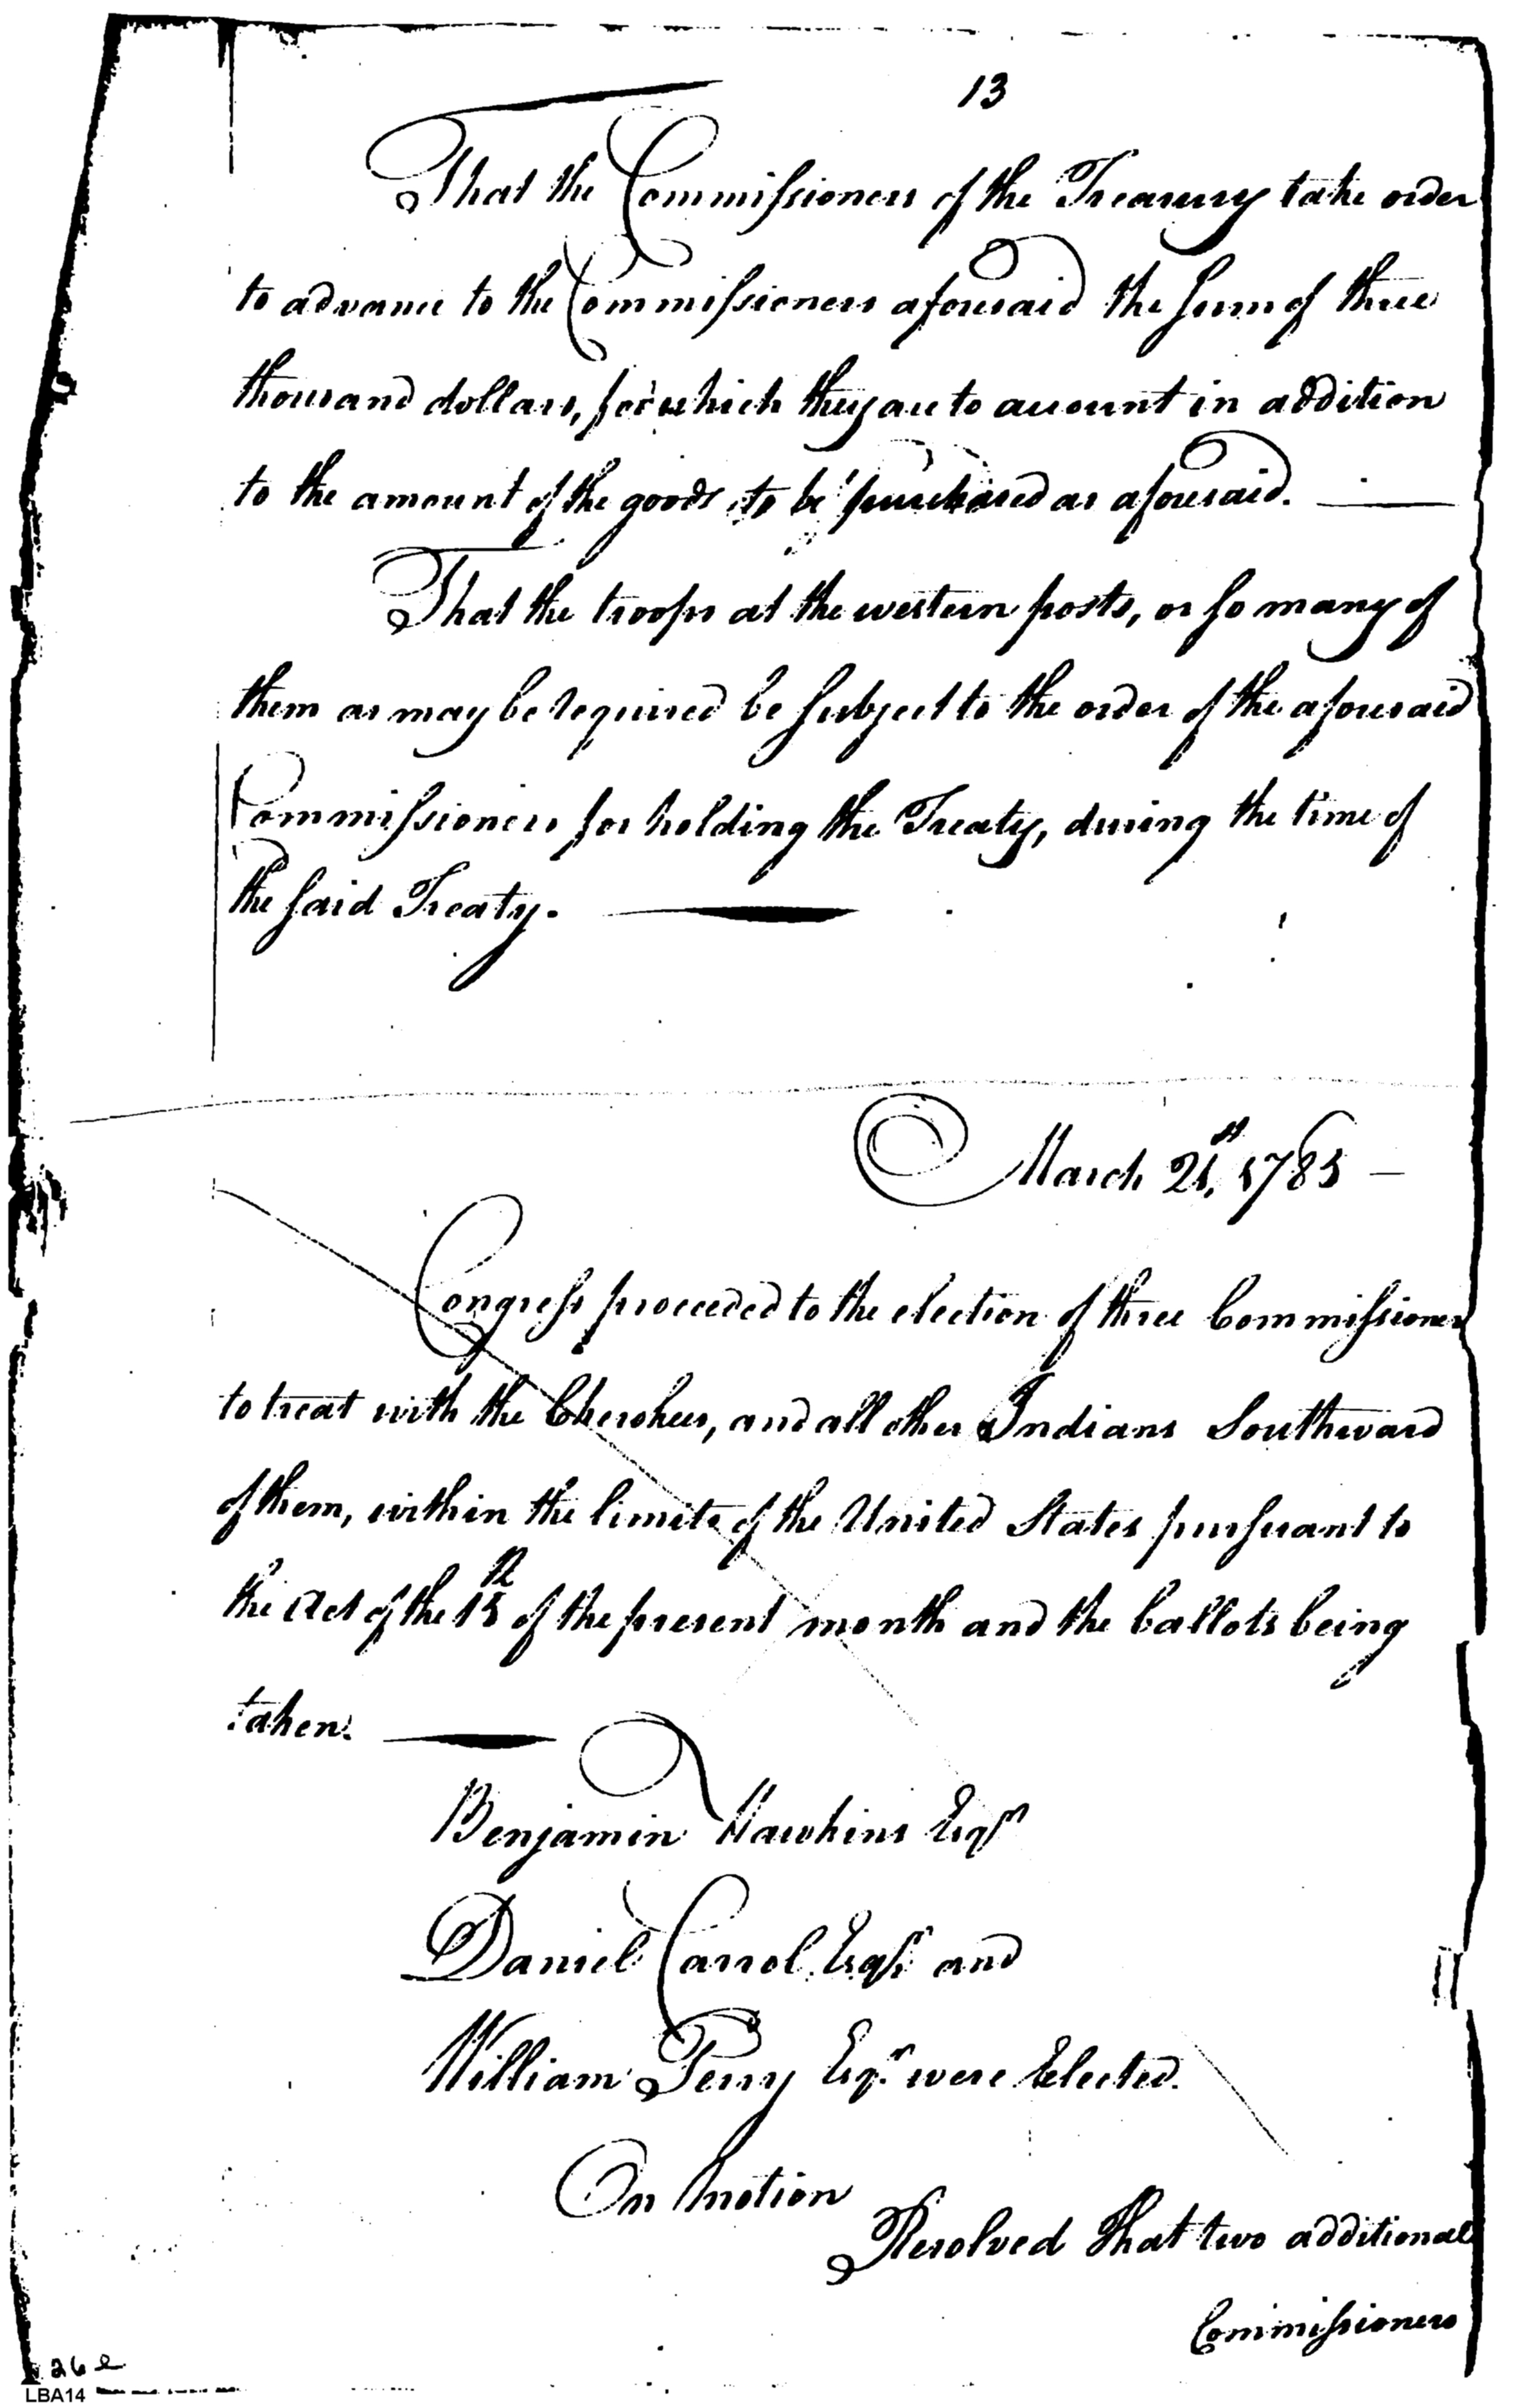 13
That the Commissioners of the Treasury take order
to advance to the Commissioners aforesaid the sum of three
thousand dollars, for which they are to account in addition
to the amount of the goods to be purchased as aforesaid.
That the troops at the western posts, or so many of
them as may be required be subject to the order of the aforesaid
Commissioners for holding the Treaty, during the time of
the said Treaty.
March 21st, 1785
Congress proceeded to the election of three Commissioners
to treat with the Cherokees, and all other Indians Southward
of them, within the limits of the United States pursuant to
the Act of the 15th of the present month and the ballots being
taken.
Benjamin Hawkins Esqr
Daniel Carrol Esqr and
William Perry Esqr were Elected.
On motion
Resolved That two additional
Commissioners
26 e
LBA14